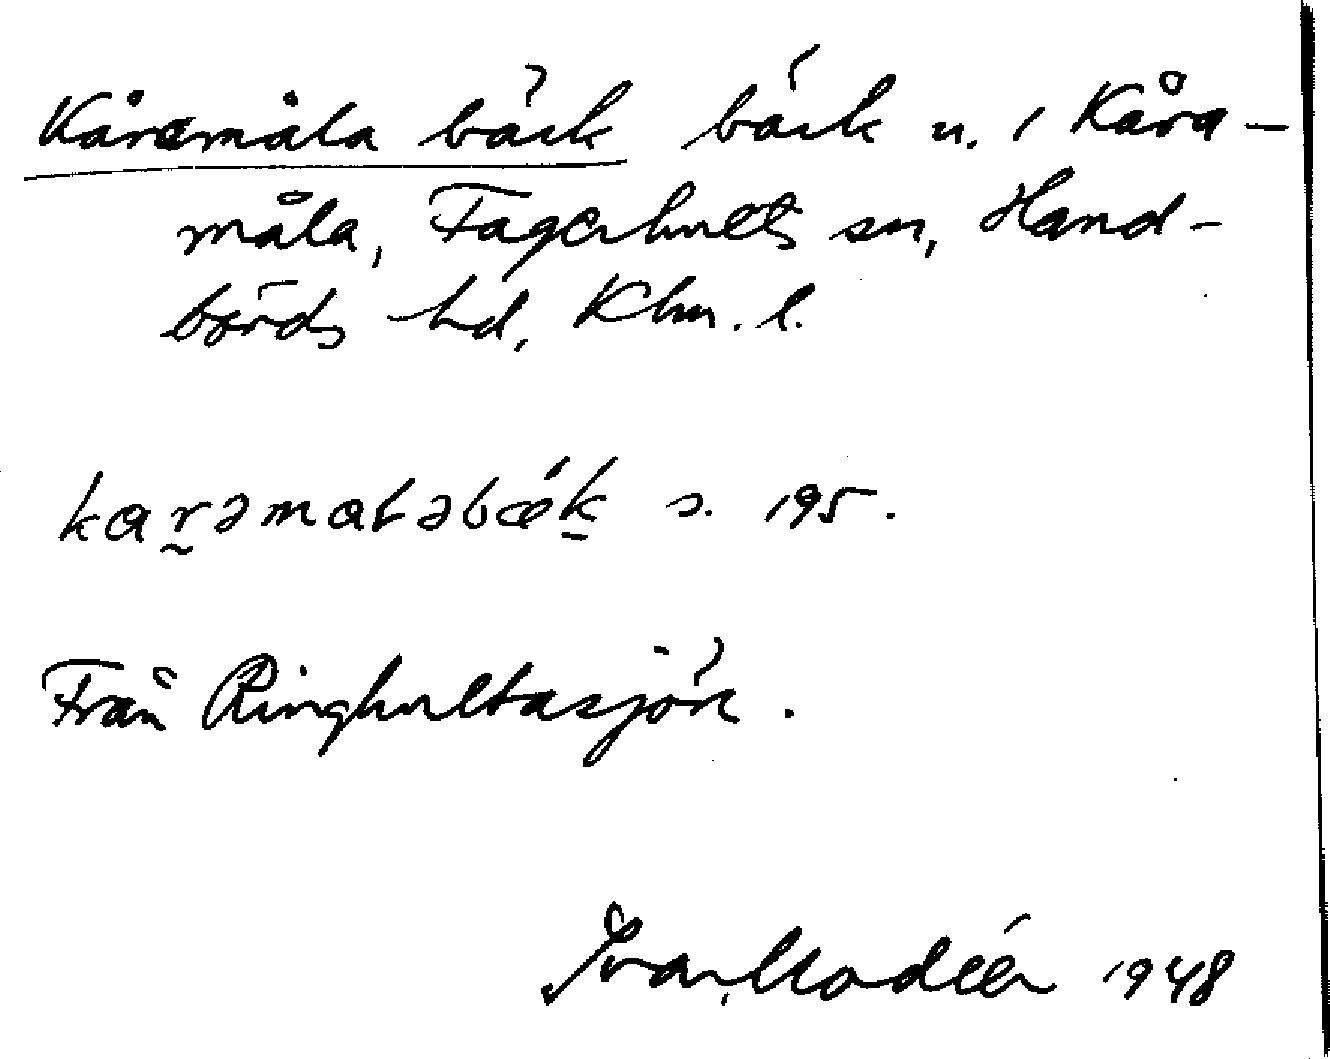 Kåramåla bäck bäck n. i Kåra-
måla, Fagerhults sn, Hand-
börds hd, Klm. l.
karəmaləbǽk s. 195.
Från Ringhultasjön.
Ivar Modéer 1948